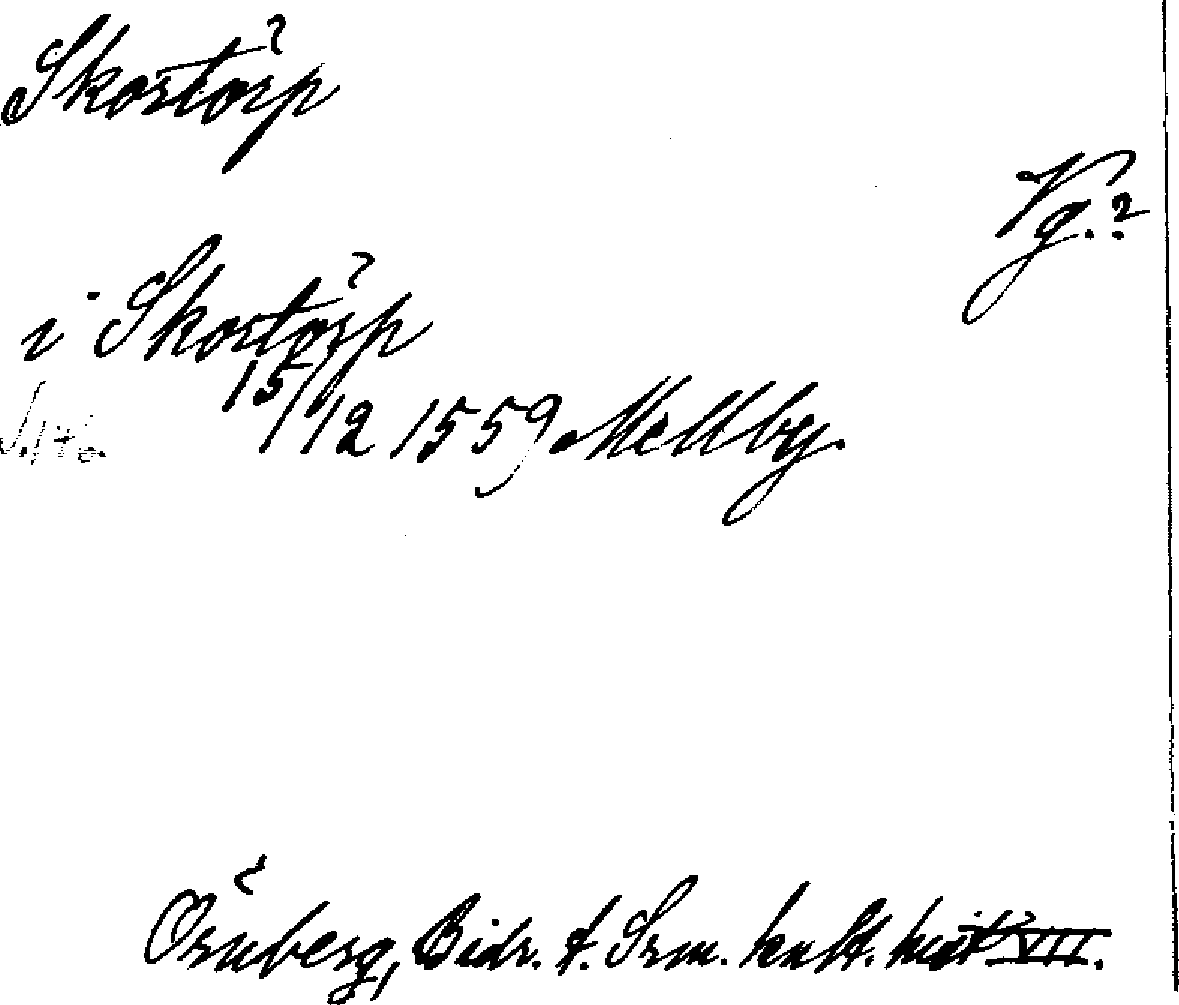 Skostörp
Vg.?
i Skostörp
15/12 1559 Mellby.
Örnberg, Bidr. t. Srm. kult. hist VII.